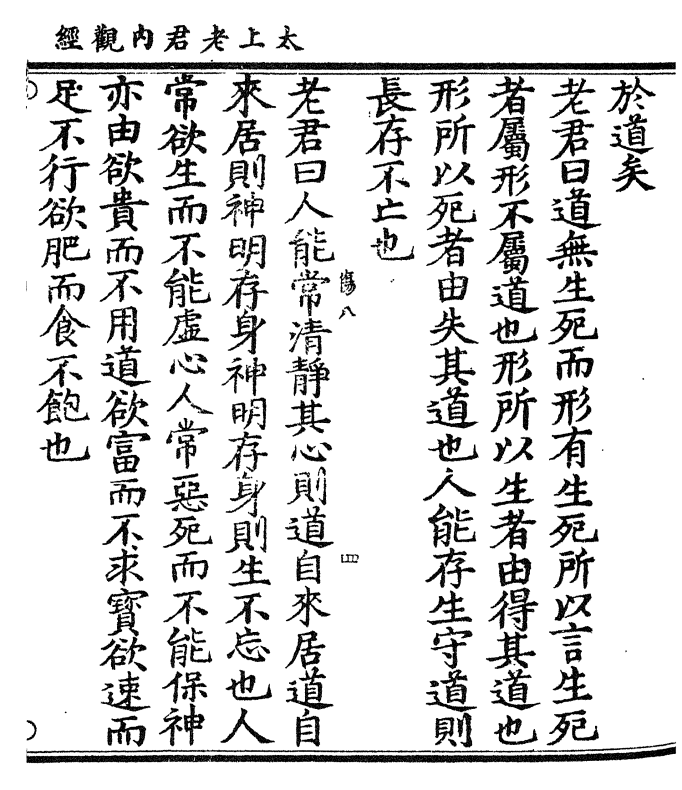 太上老君內觀經
於道矣
老君曰道無生死而形有生死所以言生死
者屬形不屬道也形所以生者由得其道也
形所以死者由失其道也人能存生守道則
長存不亡也
傷八
四
老君曰人能常清靜其心則道自來居道自
來居則神明存身神明存身則生不忘也人
常欲生而不能虛心人常惡死而不能保神
亦由欲貴而不用道欲富而不求寳欲速而
足不行欲肥而食不飽也